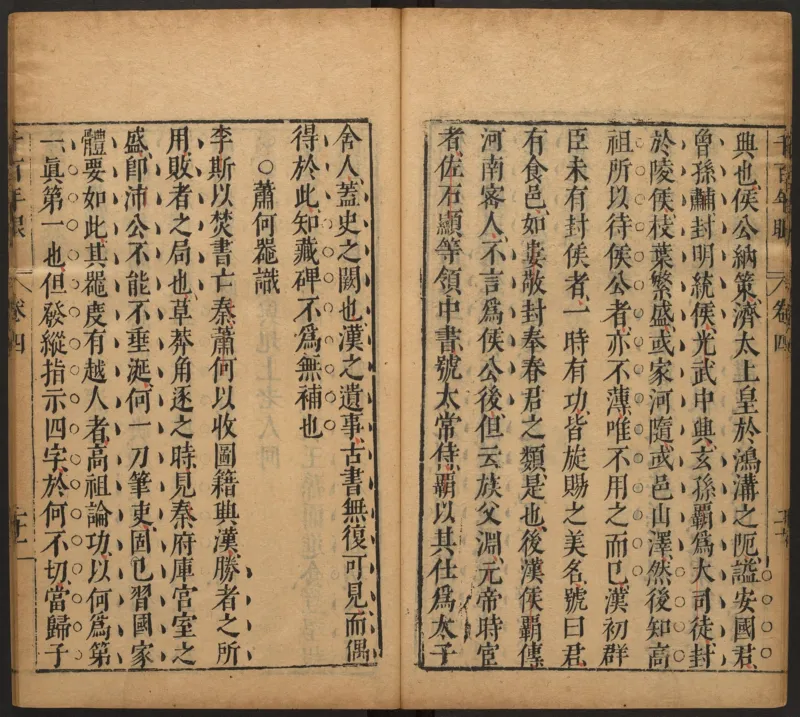 興也侯公納策濟太上皇於鴻溝之阨謚安國君
曾孫黼封明統侯光武中興玄孫霸爲大司徒封
於陵侯枝葉繁盛或家河隨或邑山澤然後知高
祖所以待侯公者亦不薄唯不用之而已漢初群
臣未有封侯者一時有功皆旋賜之美名號曰君
有食邑如婁敬封奉春君之類是也後漢侯霸傳
河南密人不言爲侯公後但云族父淵元帝時宦
者佐石顯等領中書號太常侍霸以其仕爲太子
千百年眼
卷四
舍人蓋史之闕也漢之遺事古書無復可見而偶
得於此知藏碑不爲無補也
○蕭何噐識
李斯以焚書亡秦蕭何以收圖籍興漢勝者之所
用敗者之局也草莽角逐之時見秦府庫宮室之
盛卽沛公不能不垂涎何一刀筆吏固已習國家
體要如此其噐度有越人者高祖論功以何爲第
一眞第一也但發縱指示四字於何不切當歸子
千百年眼
卷四